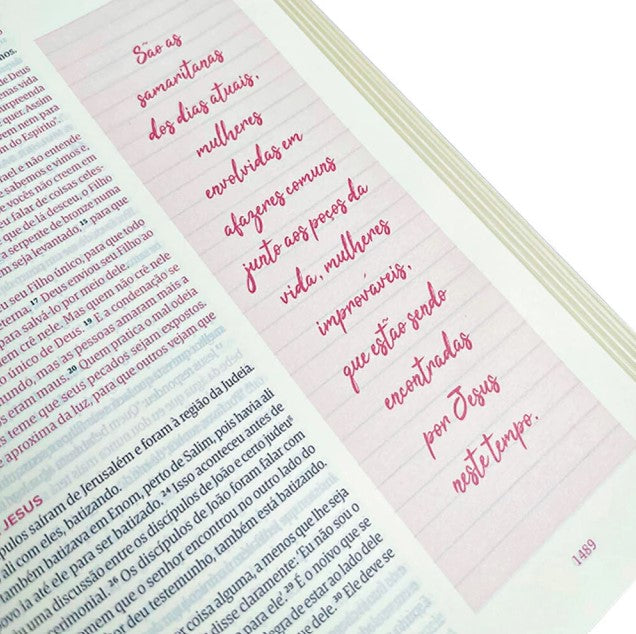 São as
samaritanas
dos dias atuais,
mulheres
envolvidas em
afazeres comuns
junto aos poços da
vida, mulheres
improváveis,
que estão sendo
encontradas
por Jesus
neste tempo.
1489
de Deus
enas vida
surpreenda
e quer. Assim
rem nem para
m do Espírito".
rael e não entende
e sabemos e vimos e,
e vocês não creem em
eu falar de coisas celes-
que de lá desceu, o Filho
a serpente de bronze numa
m seja levantado, 15 para que
u seu Filho único, para que todo
eterna. 17 Deus enviou seu Filho ao
para salvá-lo por meio dele.
em crê nele. Mas quem não crê nele
único de Deus. 19 E a condenação se
mundo, mas as pessoas amaram mais a
s eram maus. 20 Quem pratica o mal odeia
s teme que seus pecados sejam expostos.
e aproxima da luz, para que outros vejam que
JESUS
pulos saíram de Jerusalém e foram à região da Judeia.
ali com eles, batizando.
também batizava em Enom, perto de Salim, pois havia ali
ovo ia até ele para ser batizado. 24 Isso aconteceu antes de
uma discussão entre os discípulos de João e certo judeu
cerimonial. 26 Os discípulos de João foram falar com
que o senhor encontrou no outro lado do
or deu testemunho, também está batizando.
coisa alguma, a menos que lhe seja
disse claramente: 'Eu não sou o
para ele'. 29 É o noivo que se
alegra de estar ao lado dele
30 Ele deve se